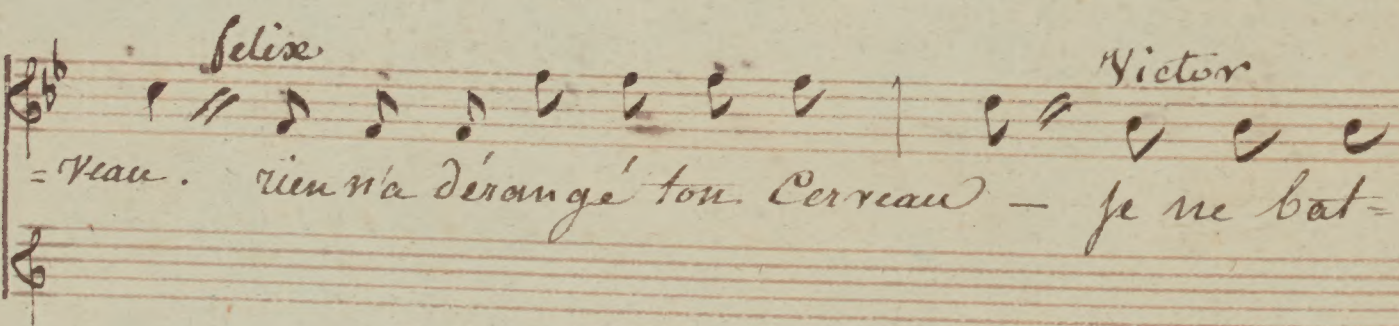 felix Victor
=veau. rien n'a dérangé ton Cerveau – je ne bat=